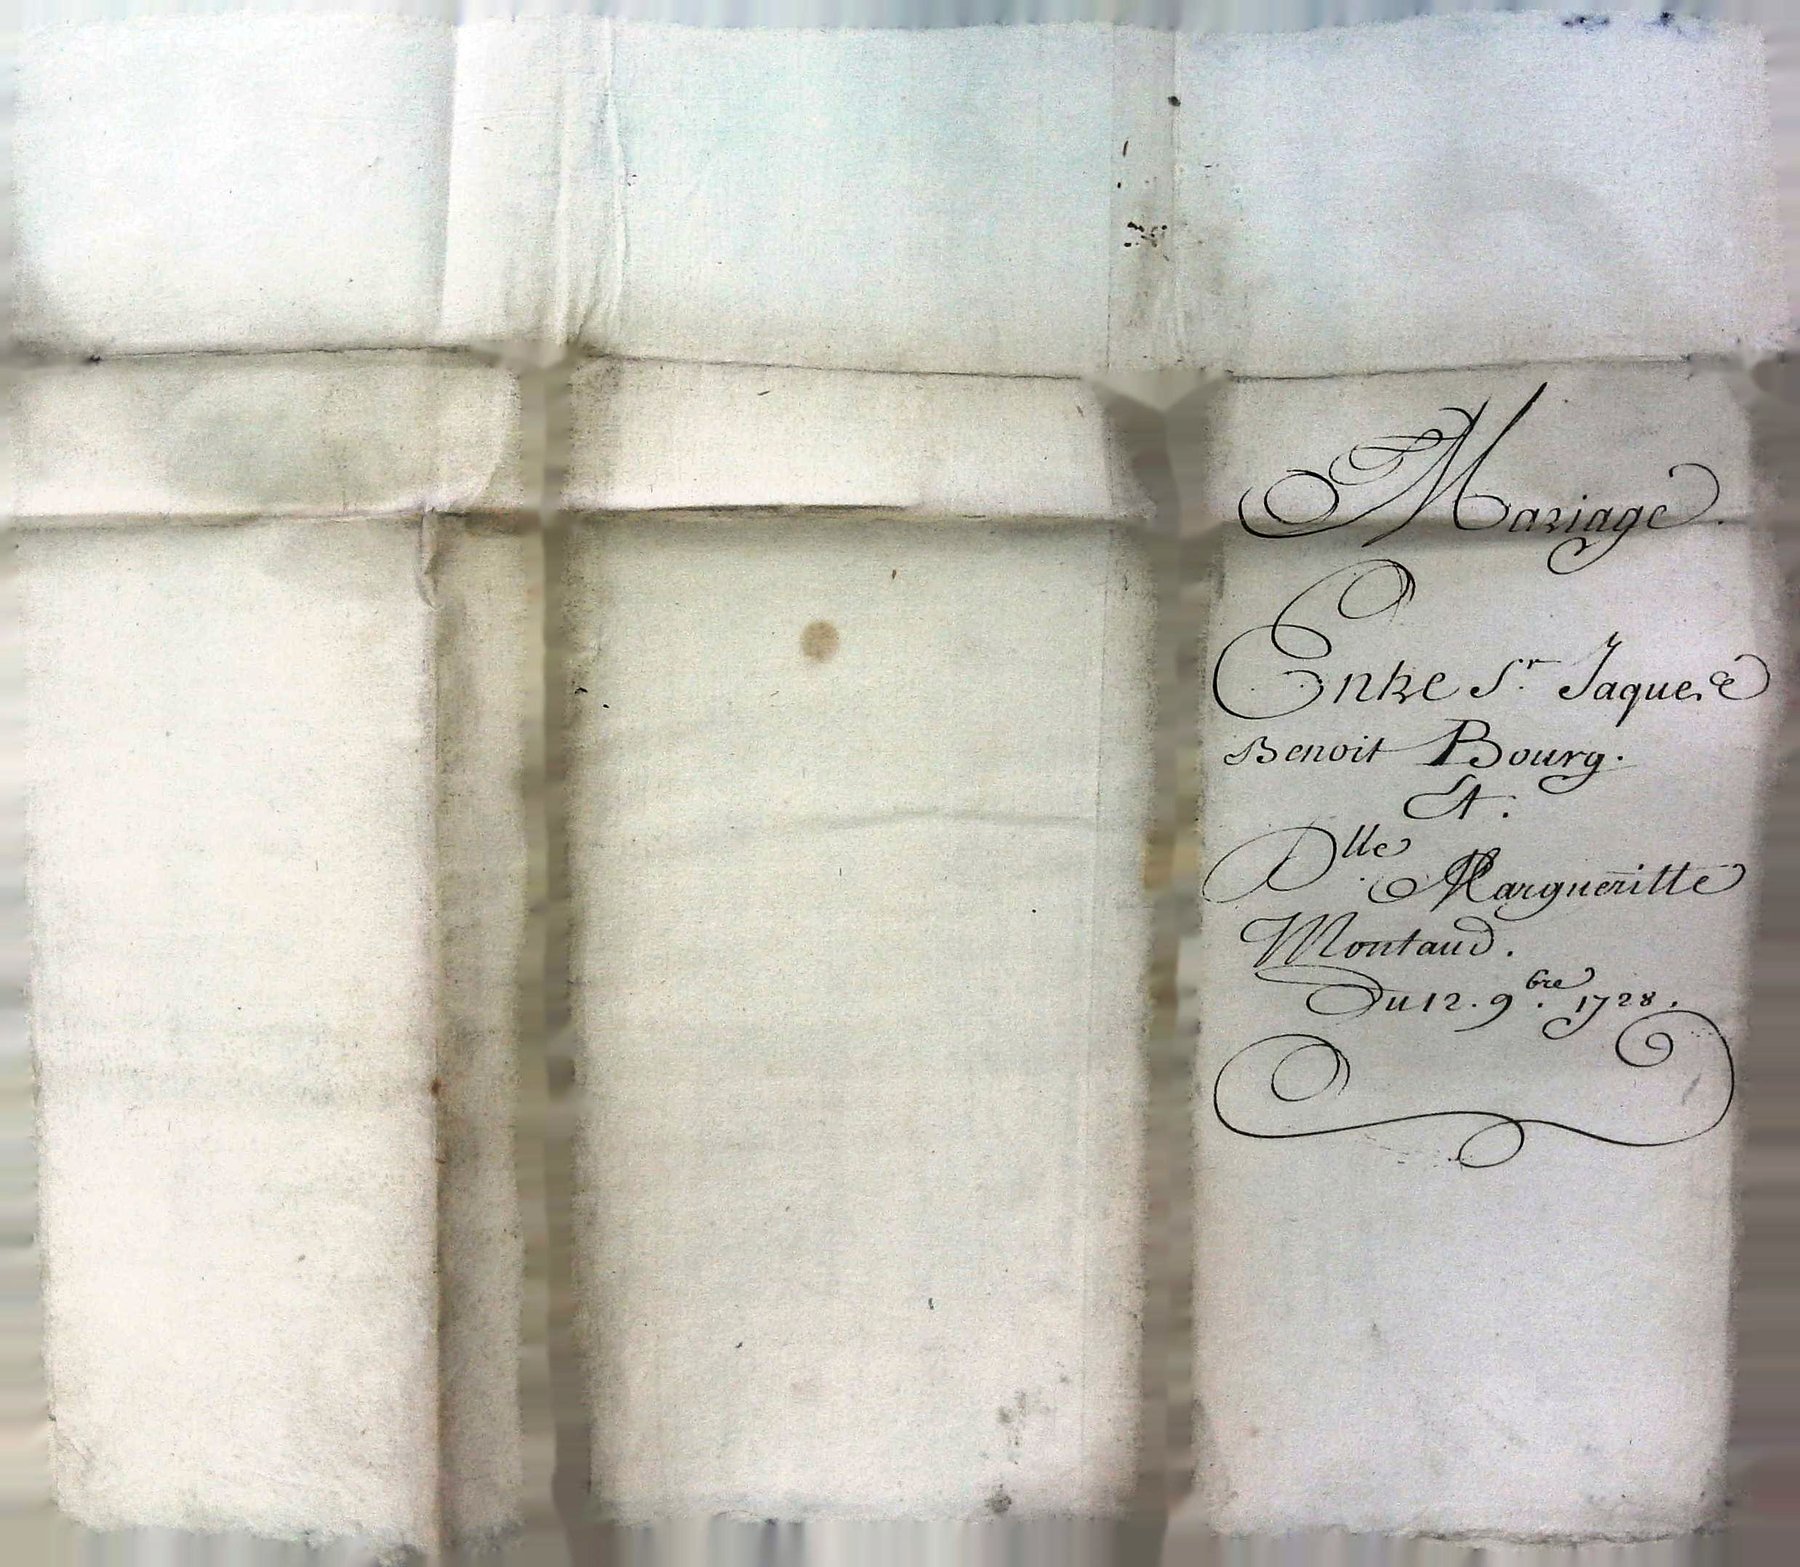 Mariage
Entre S.r Jaque
Benoit Bourg.
Et.
Dlle Margueritte
Montaud.
Du 12. 9.bre 1728.